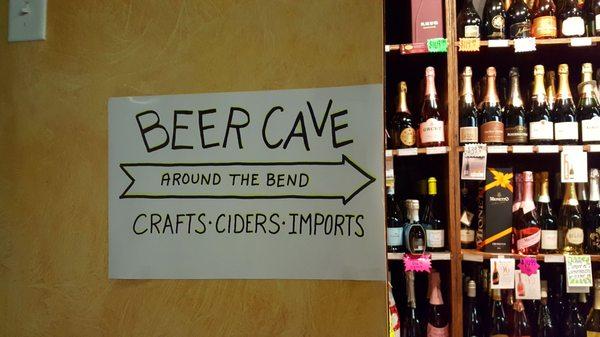 BEER CAVE
AROUND THE BEND
CRAFTS · CIDERS · IMPORTS